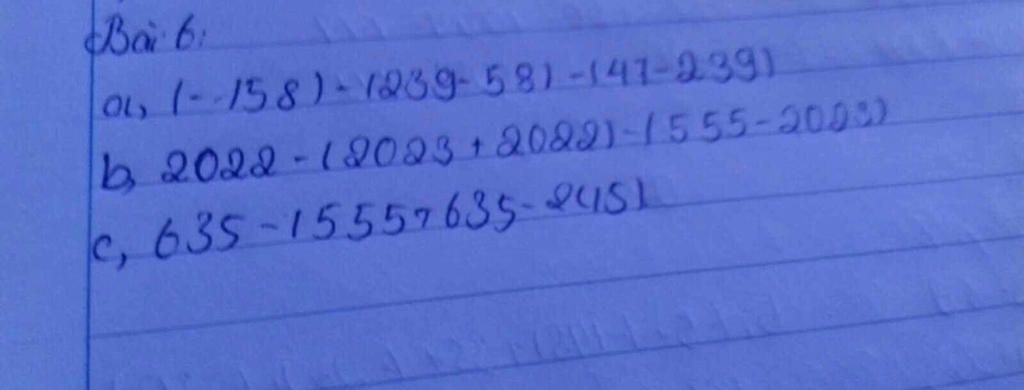 Bài 6:
a, (-158) - (239-58) - (47-239)
b, 2022 - (2023 + 2022) - (555-2023)
c, 635 - (555+635-245)